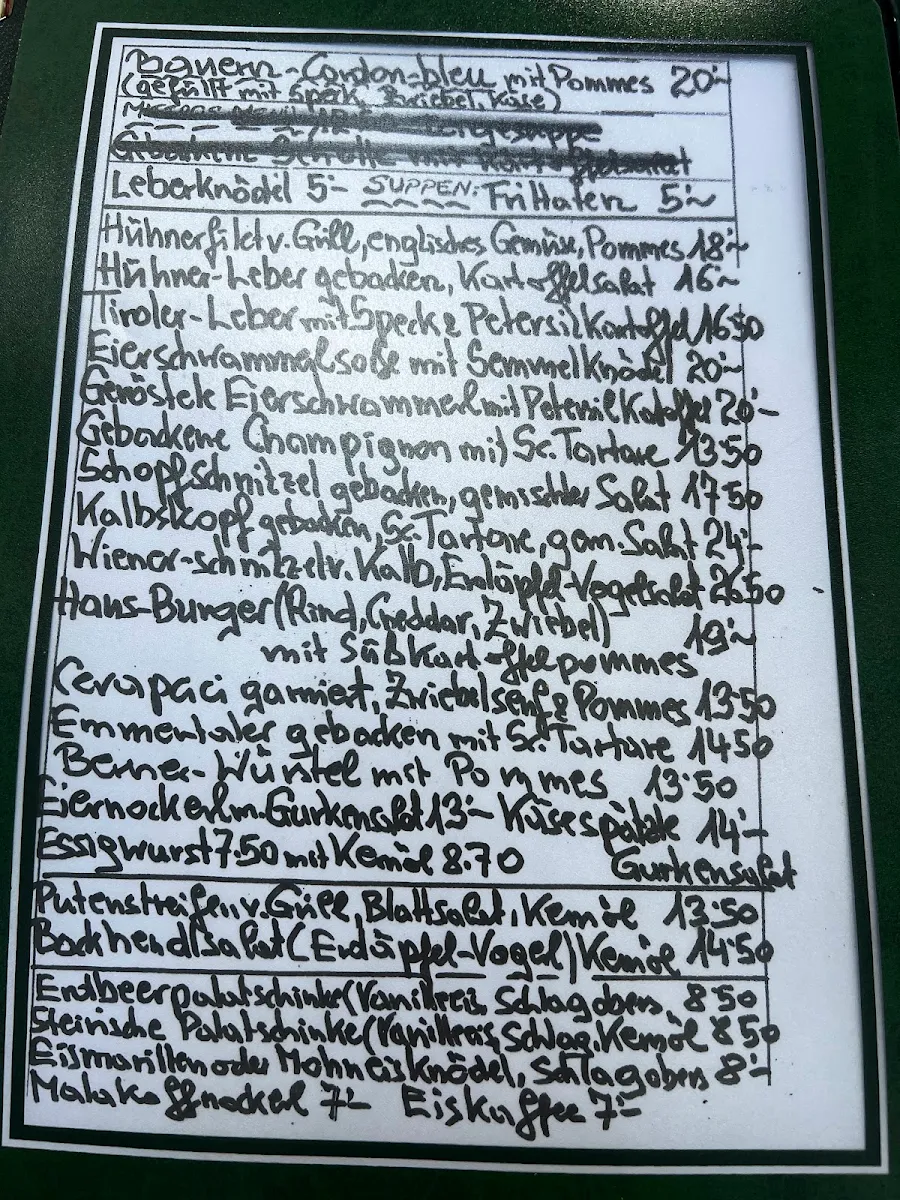 Bauern-Cordon-bleu mit Pommes 20'-
(gefüllt mit Speck, Zwiebel, Käse)
Gebackene Scholle mit Kartoffelsalat
Leberknödel 5'- SUPPEN: Frittaten 5'~
Hühnerfilet v. Grill, englisches Gemüse, Pommes 18'~
Hühner-Leber gebacken, Kartoffelsalat 16'~
Tiroler-Leber mit Speck & Petersilkartoffel 16'50
Eierschwammelsoße mit Semmelknödel 20'~
Geröstete Eierschwammerl mit Petersilkartoffel 20'-
Gebackene Champignon mit Sc. Tartare 13'50
Schopfschnitzel gebacken, gemischter Salat 17'50
Kalbskopf gebacken, Sc. Tartare, gem. Salat 24'-
Wiener-schnitzel v. Kalb, Erdäpfel-Vogelsalat 26'50
Haus-Burger (Rind, Cheddar, Zwiebel) 19'~
mit Süßkartoffelpommes
Cevapcici garniert, Zwiebelsenf & Pommes 13'50
Emmentaler gebacken mit Sc. Tartare 14'50
Berner-Würstel mit Pommes 13'50
Eiernockerl m. Gurkensalat 13'- Käsespätzle 14'-
Essigwurst 7.50 mit Kernöl 8.70 Gurkensalat
Putenstreifen v. Grill, Blattsalat, Kernöl 13'50
Backhendlsalat (Erdäpfel-Vogel) Kernöl 14'50
Erdbeerpalatschinke (Vanilleeis, Schlagobers, 8'50
Steirische Palatschinke (Vanilleeis, Schlag, Kernöl 8'50
Eismarillen oder Mohneisknödel, Schlagobers 8'-
Malakoffnockerl 7'- Eiskaffee 7'-